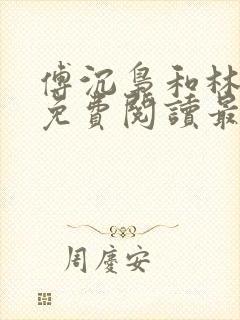 傅沉梟和林
免費閱讀最
周慶安